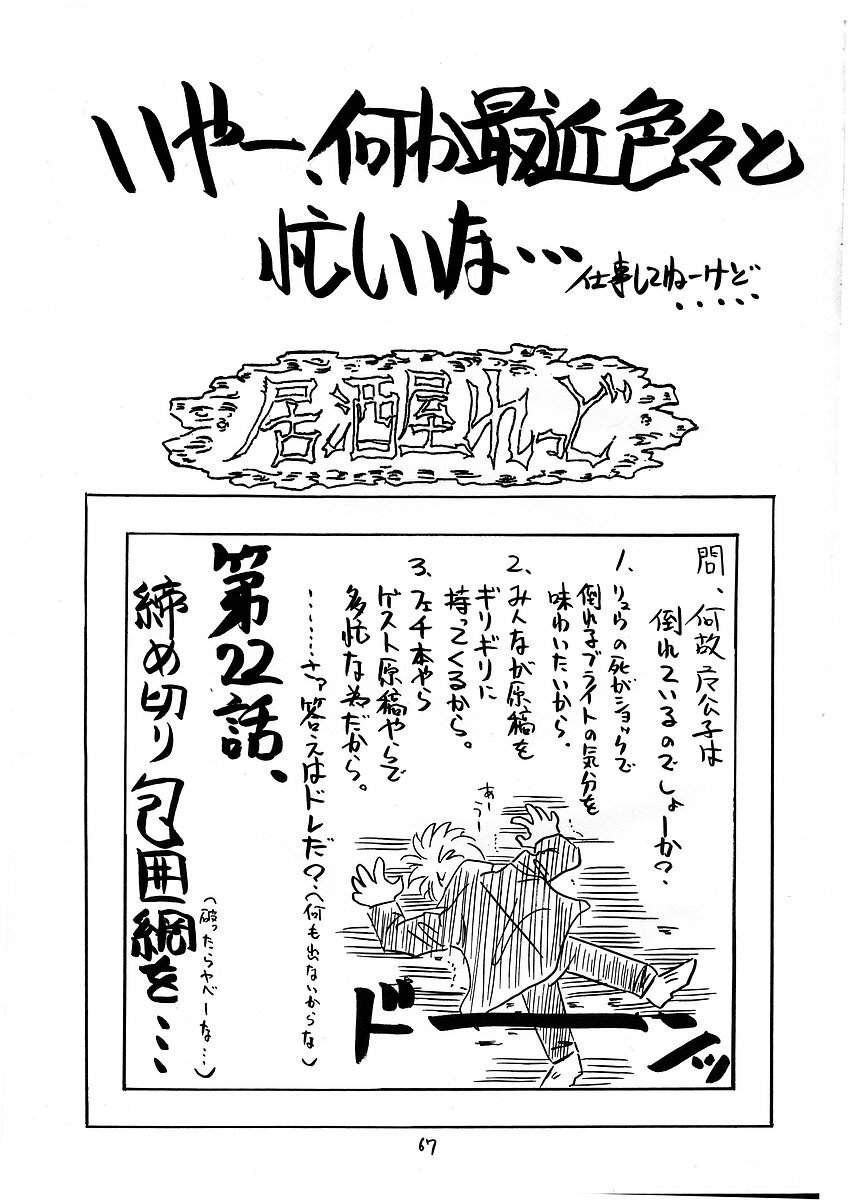 いやー、何か最近色々と
忙しいな…
仕事してねーけど・・・・・
居酒屋れっど
問、何故R公子は
倒れているのでしょーか？
1、リュウの死がショックで
倒れ子ブライトの気分を
味わいたいから。
2、みんなが原稿を
ギリギリに
持ってくるから。
3、フェチ本やら
ゲスト原稿やらで
多忙な為だから。
………さァ答えはドレだ？（何も出ないからな）
第22話、
締め切り包囲網を…
（破ったらヤベーな…）
あー
うー
ドーーンッ
67